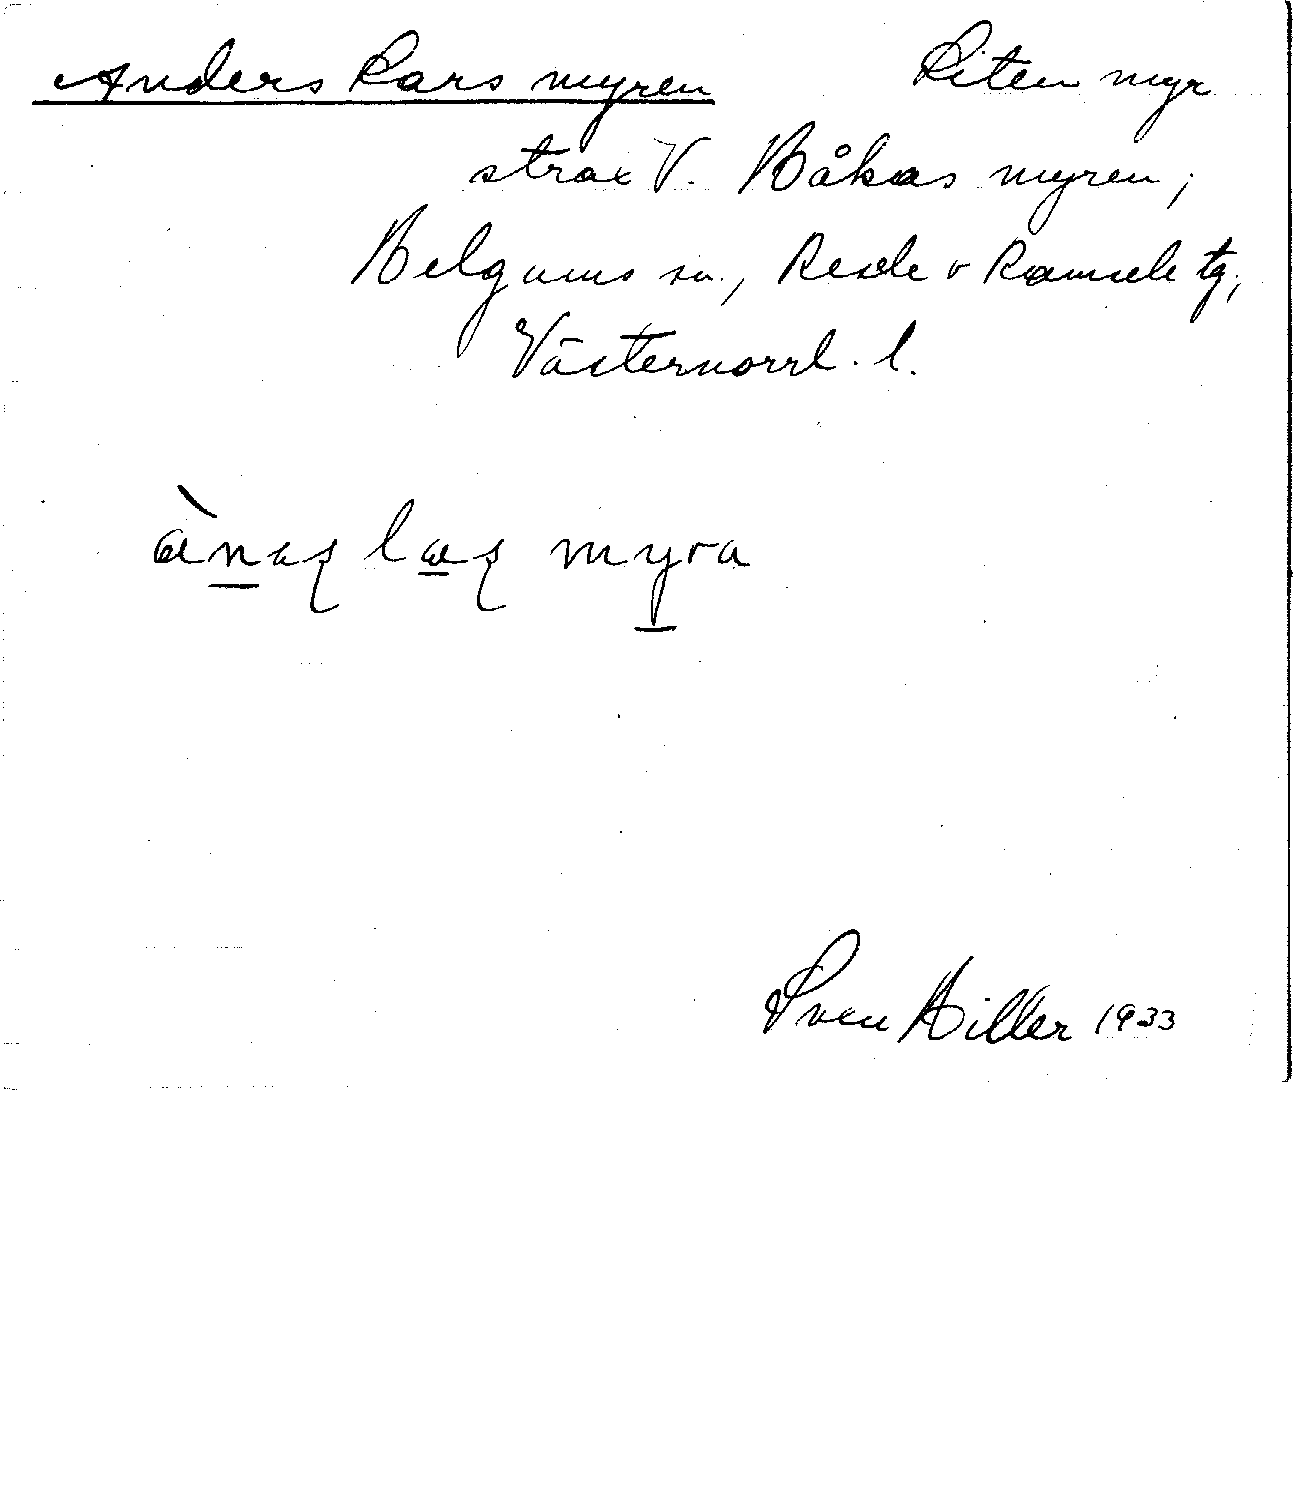 Anders Lars myren Liten myr
strax V. Båkas myren,
Helgums sn., Resele o Ramsele tg,
Västernorrl. l.
myra
Sven Hiller 1933